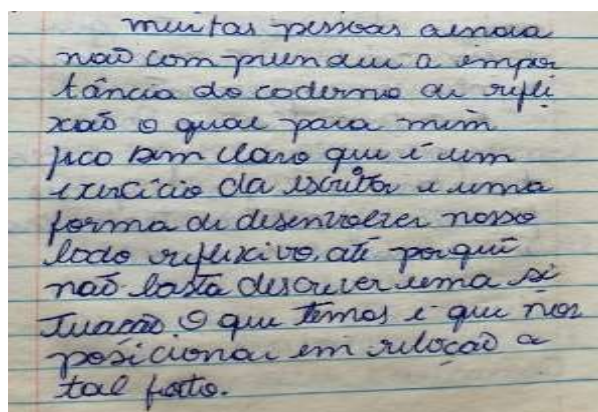 muitas pessoas ainda
não comprendeu a impor
tância do caderno de refle
xão o qual para mim
fico bem claro que é um
exercício da escrita e uma
forma de desenvolver nosso
lado reflexivo, até porquê
não basta descrever uma si
tuação. O que temos é que nos
posicionar em relação a
tal fato.